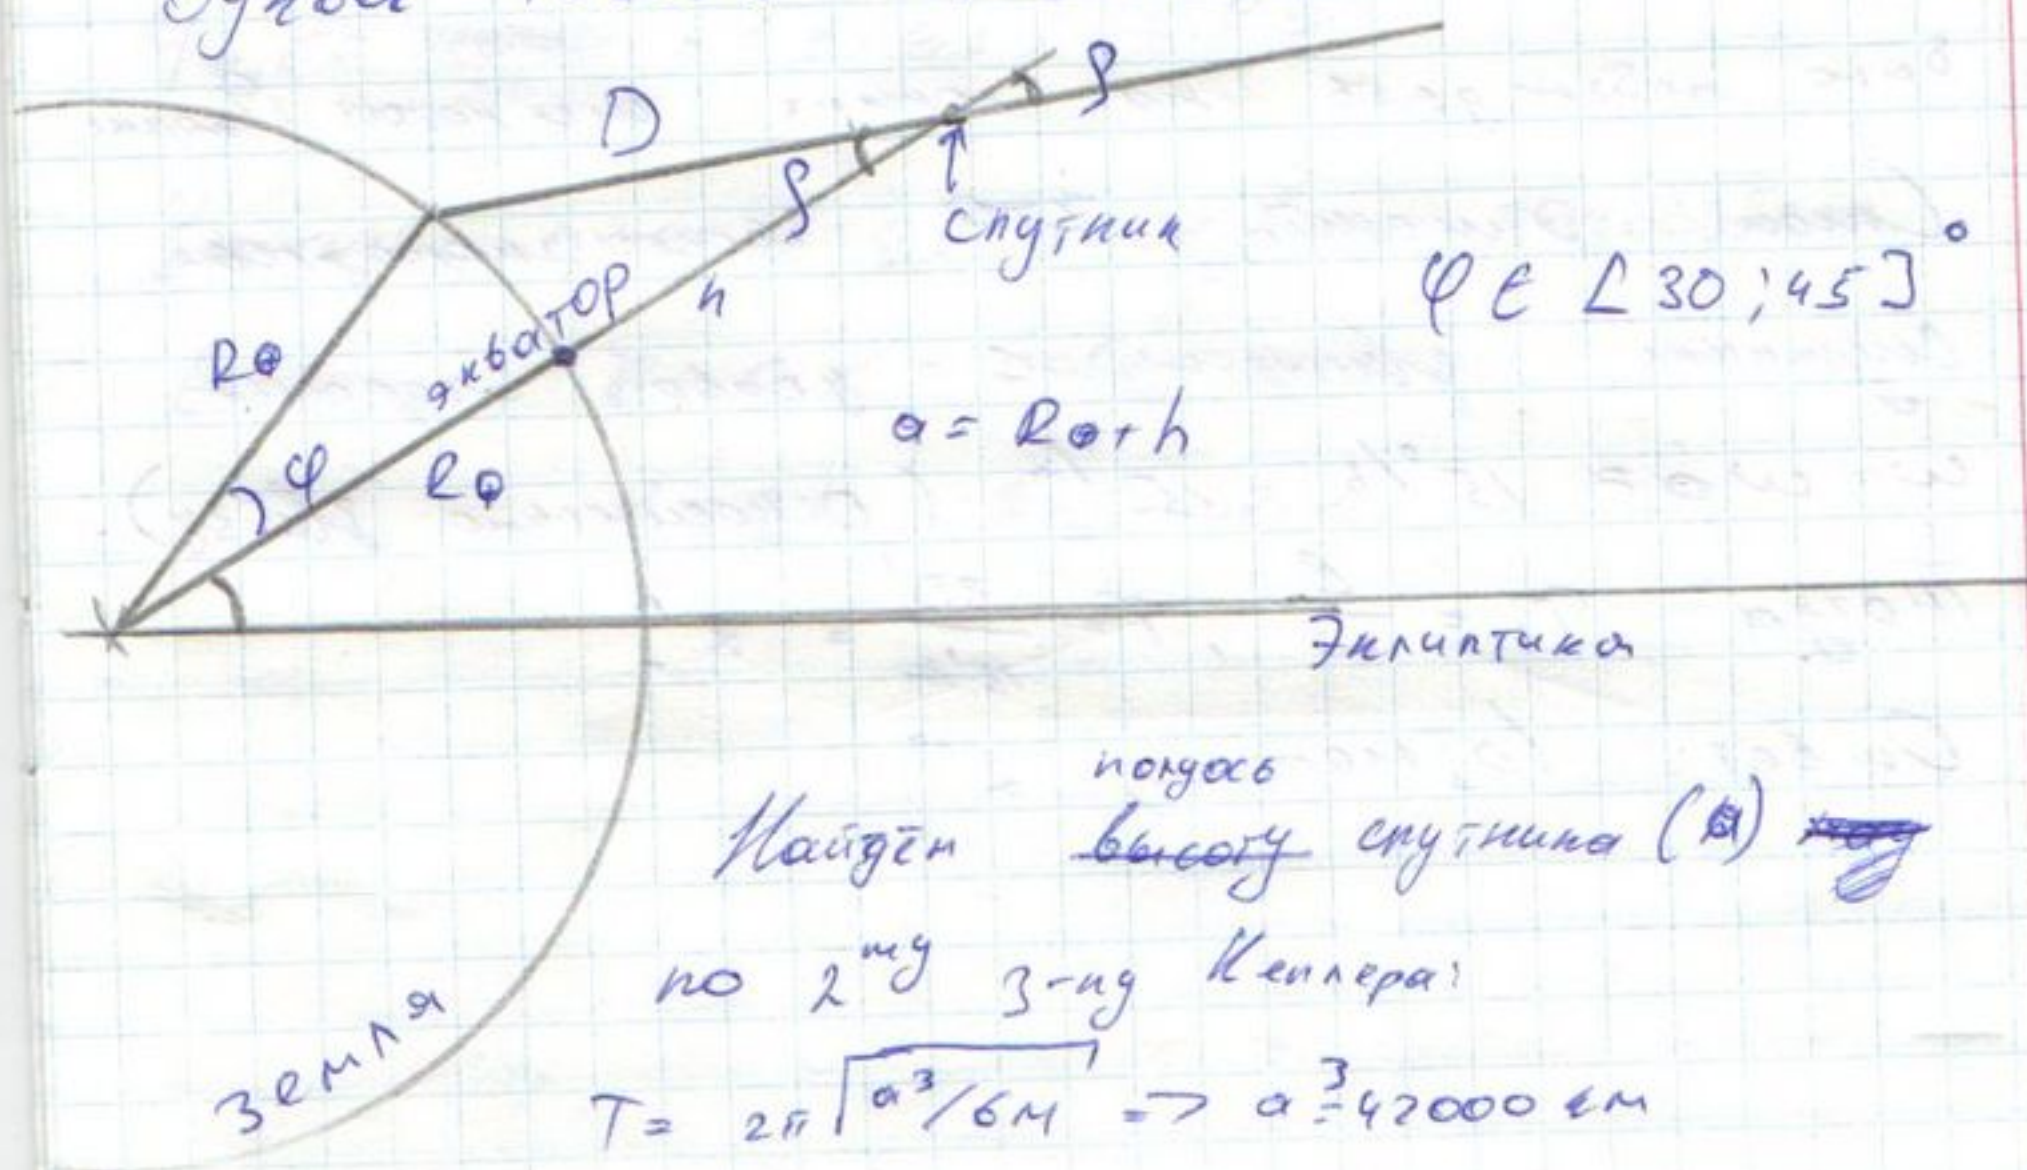 D
ρ
ρ
спутник
φ ∈ [30; 45]°
экватор
h
R⊕
a = R⊕ + h
φ
R⊕
Эклиптика
полуось
Найдём высоту спутника (a)
по 2му 3-ну Кеплера:
земля
T = 2π √a³/GM => a³=42000 км